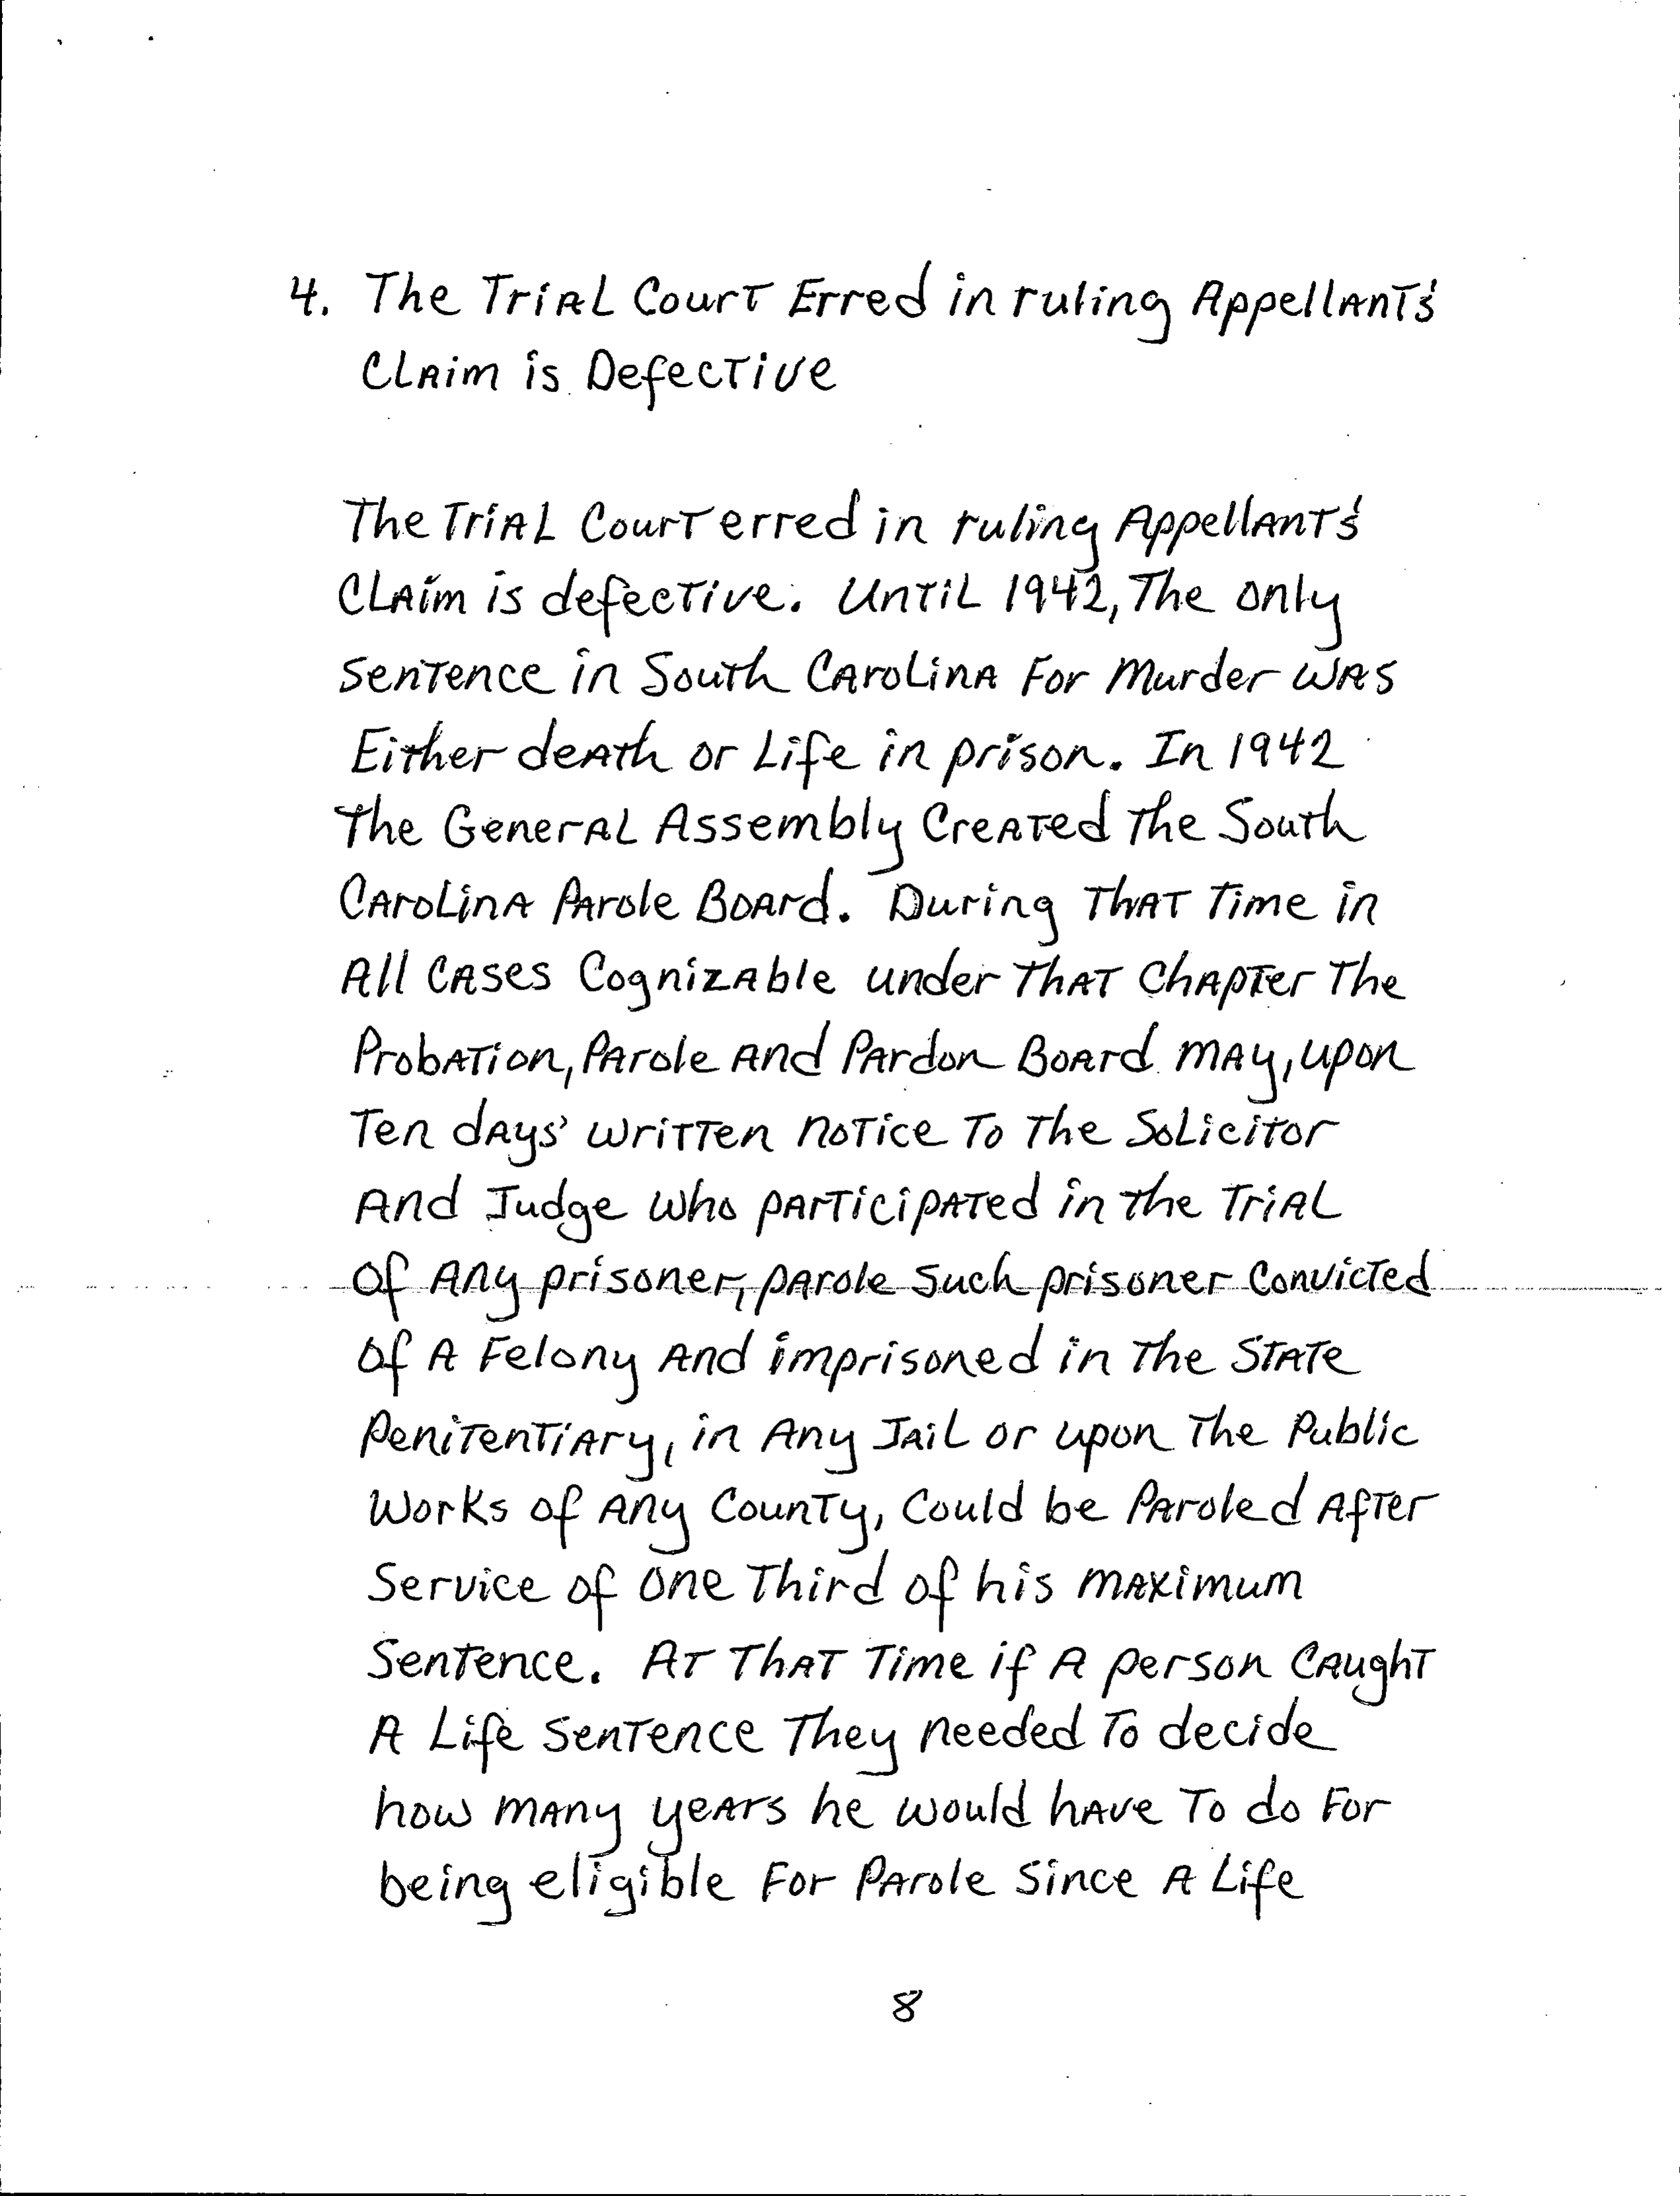 4. The Trial Court Erred in ruling Appellant's
Claim is Defective
The Trial Court erred in ruling Appellant's
Claim is defective. Until 1942, The only
Sentence in South Carolina For Murder was
Either death or Life in prison. In 1942
The General Assembly Created The South
Carolina Parole Board. During That Time in
All Cases Cognizable under That Chapter The
Probation, Parole and Pardon Board may, upon
Ten days' written notice To The Solicitor
And Judge who participated in the Trial
of Any prisoner, parole such prisoner Convicted
of A Felony and imprisoned in The State
Penitentiary, in Any Jail or upon The Public
Works of Any County, Could be Paroled After
Service of one Third of his maximum
Sentence. At That Time if A person Caught
A Life Sentence They needed To decide
how many years he would have To do For
being eligible For Parole Since A Life
8